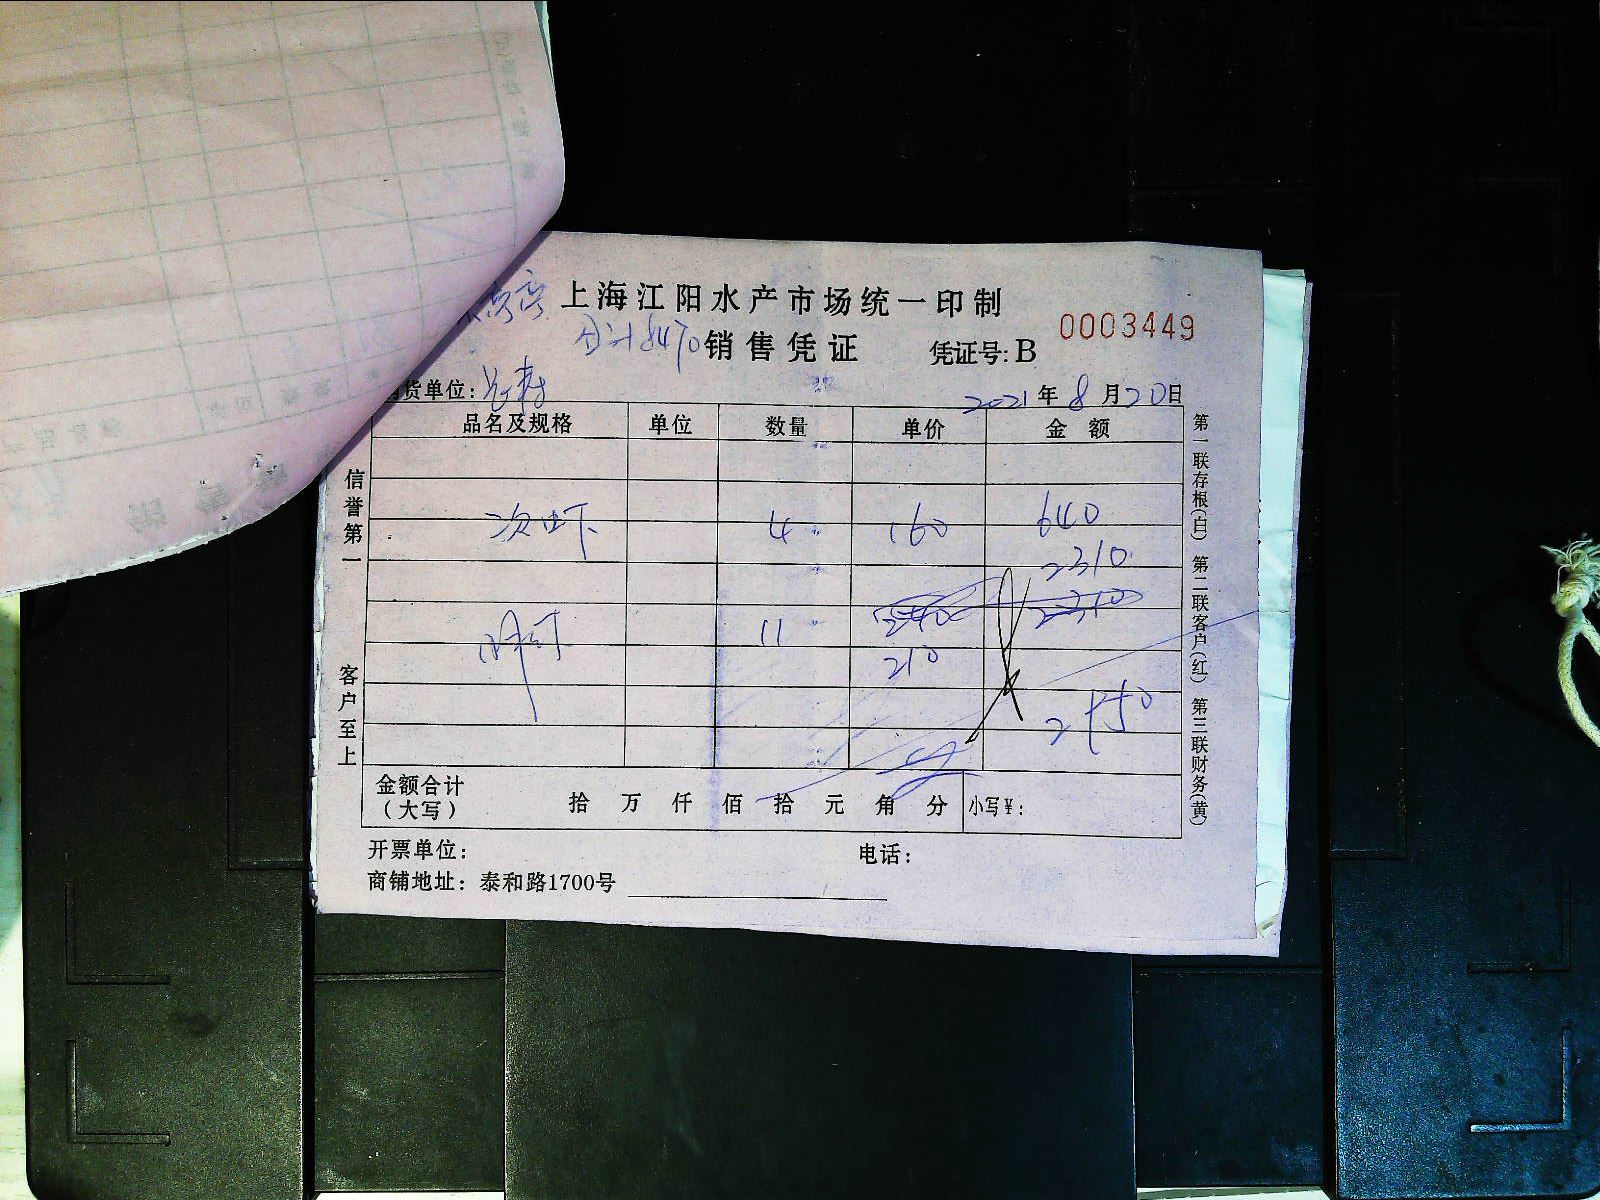 上海江阳水产市场统一印制
合计8470 销售凭证 凭证号: B 0003449
货单位:
2021年8月20日
品名及规格 单位 数量 单价 金额
次虾 4 160 640
2310
11
210
2950
金额合计（大写） 拾 万 仟 佰 拾 元 角 分 小写¥:
开票单位: 电话:
商铺地址: 泰和路1700号
信誉第一
客户至上
第一联存根(白) 第二联客户(红) 第三联财务(黄)